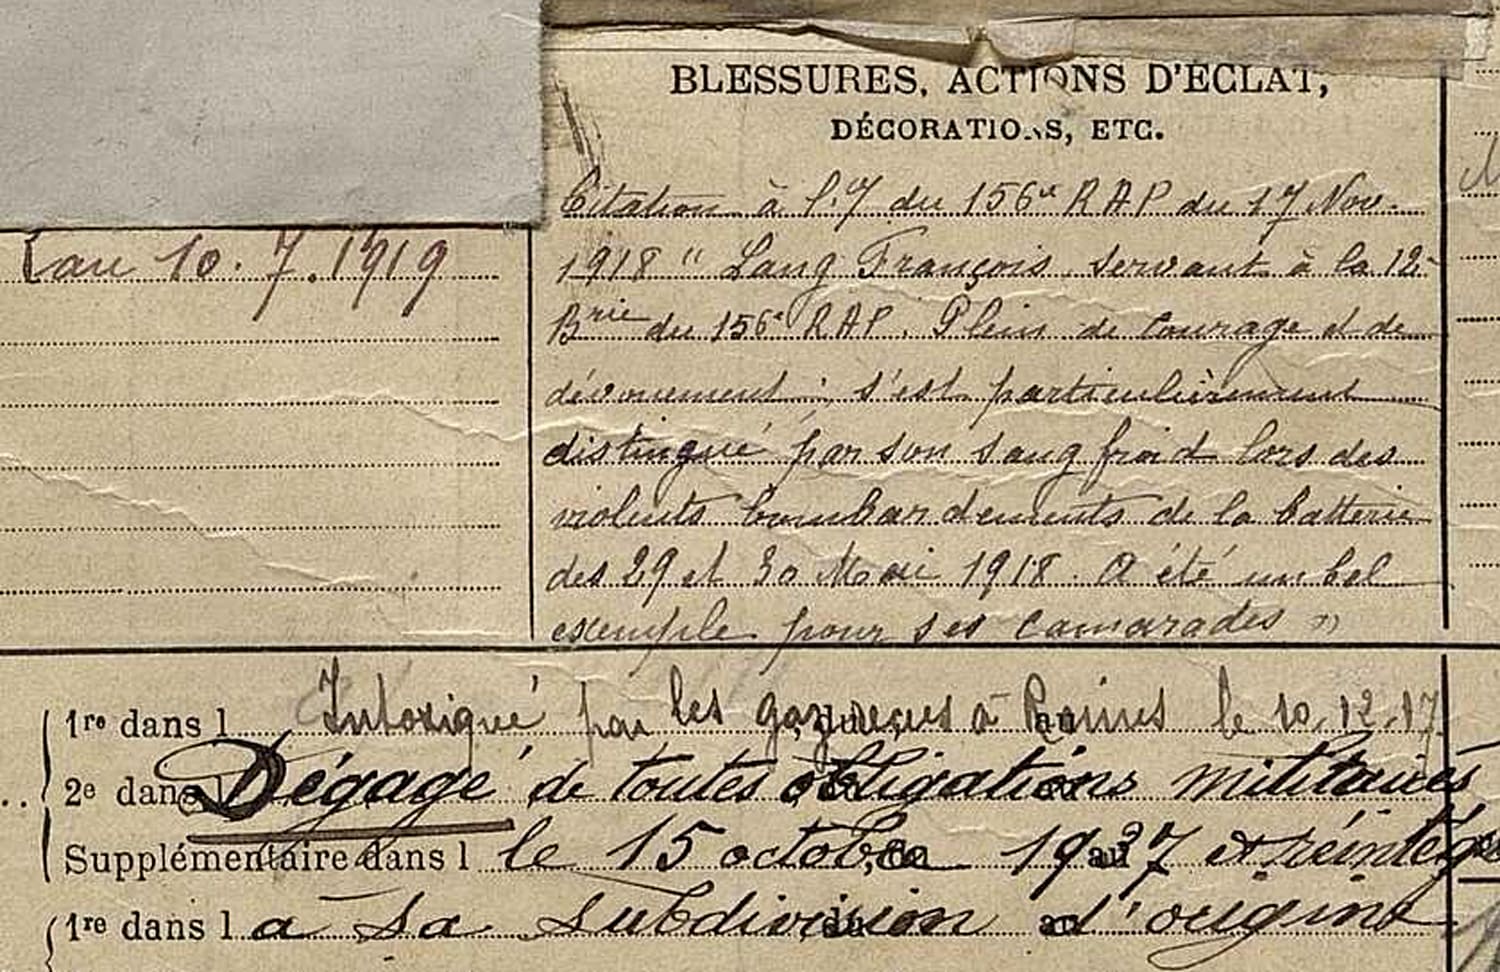 BLESSURES, ACTIONS D'ÉCLAT,
DÉCORATIONS, ETC.
Citation à l'. du 156e RAP du 17 Nov.
1918 " Lang François, servant à la 12e
Brie du 156e RAP. Plein de courage et de
dévouement : s'est particulièrement
distingué par son sang froid lors des
violents bombardements de la batterie
des 29 et 30 Mai 1918. A été un bel
exemple pour ses camarades "
au 10.7.1919
1re dans l Intoxiqué par les gaz à Reims le 10.12.17
2e dans l Dégagé de toutes obligations militaires
Supplémentaire dans l le 15 octobre 1937 et réintégré
1re dans l a sa subdivision d'origine